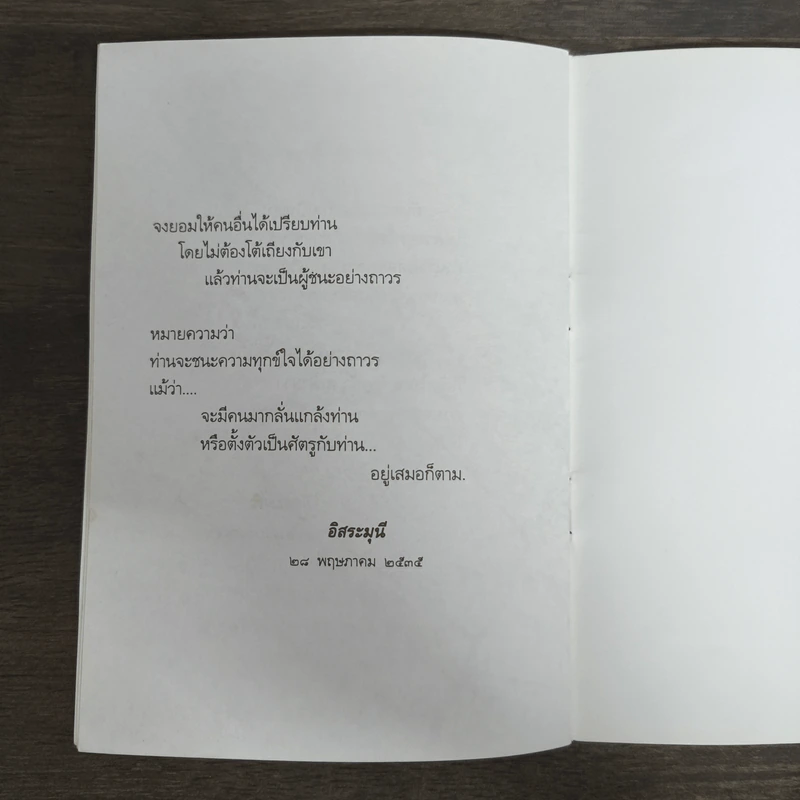 จงยอมให้คนอื่นได้เปรียบท่าน
โดยไม่ต้องโต้เถียงกับเขา
แล้วท่านจะเป็นผู้ชนะอย่างถาวร
หมายความว่า
ท่านจะชนะความทุกข์ใจได้อย่างถาวร
แม้ว่า....
จะมีคนมากลั่นแกล้งท่าน
หรือตั้งตัวเป็นศัตรูกับท่าน...
อยู่เสมอก็ตาม.
อิสระมุนี
๒๘ พฤษภาคม ๒๕๓๕